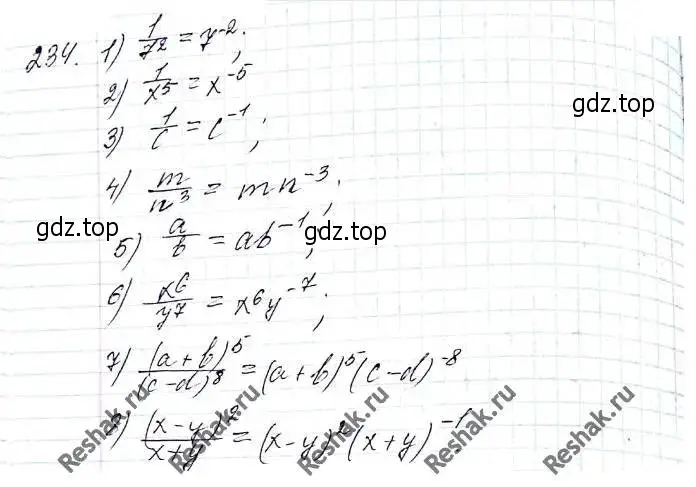 234. 1) 1/7² = 7⁻²;
2) 1/x⁵ = x⁻⁵
3) 1/c = c⁻¹;
4) m/n³ = mn⁻³;
5) a/b = ab⁻¹;
6) x⁶/y⁷ = x⁶y⁻⁷;
7) (a+b)⁵/(c-d)⁸ = (a+b)⁵(c-d)⁻⁸
8) (x-y)²/(x+y) = (x-y)²(x+y)⁻¹
gdz.top
gdz.top
gdz.top
Reshak.ru
Reshak.ru
Reshak.ru
Reshak.ru
Reshak.ru